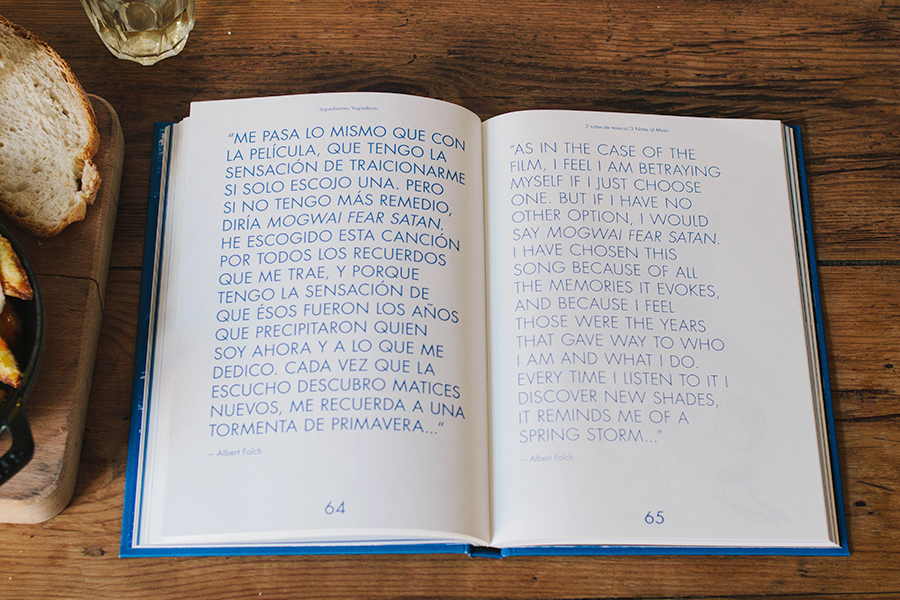 Ingredientes / Ingredients
“ME PASA LO MISMO QUE CON
LA PELÍCULA, QUE TENGO LA
SENSACIÓN DE TRAICIONARME
SI SOLO ESCOJO UNA. PERO
SI NO TENGO MÁS REMEDIO,
DIRÍA MOGWAI FEAR SATAN.
HE ESCOGIDO ESTA CANCIÓN
POR TODOS LOS RECUERDOS
QUE ME TRAE, Y PORQUE
TENGO LA SENSACIÓN DE
QUE ÉSOS FUERON LOS AÑOS
QUE PRECIPITARON QUIEN
SOY AHORA Y A LO QUE ME
DEDICO. CADA VEZ QUE LA
ESCUCHO DESCUBRO MATICES
NUEVOS, ME RECUERDA A UNA
TORMENTA DE PRIMAVERA...”
— Albert Folch
64
3 notas de música / 3 Notes of Music
“AS IN THE CASE OF THE
FILM, I FEEL I AM BETRAYING
MYSELF IF I JUST CHOOSE
ONE. BUT IF I HAVE NO
OTHER OPTION, I WOULD
SAY MOGWAI FEAR SATAN.
I HAVE CHOSEN THIS
SONG BECAUSE OF ALL
THE MEMORIES IT EVOKES,
AND BECAUSE I FEEL
THOSE WERE THE YEARS
THAT GAVE WAY TO WHO
I AM AND WHAT I DO.
EVERY TIME I LISTEN TO IT I
DISCOVER NEW SHADES,
IT REMINDS ME OF A
SPRING STORM...”
— Albert Folch
65